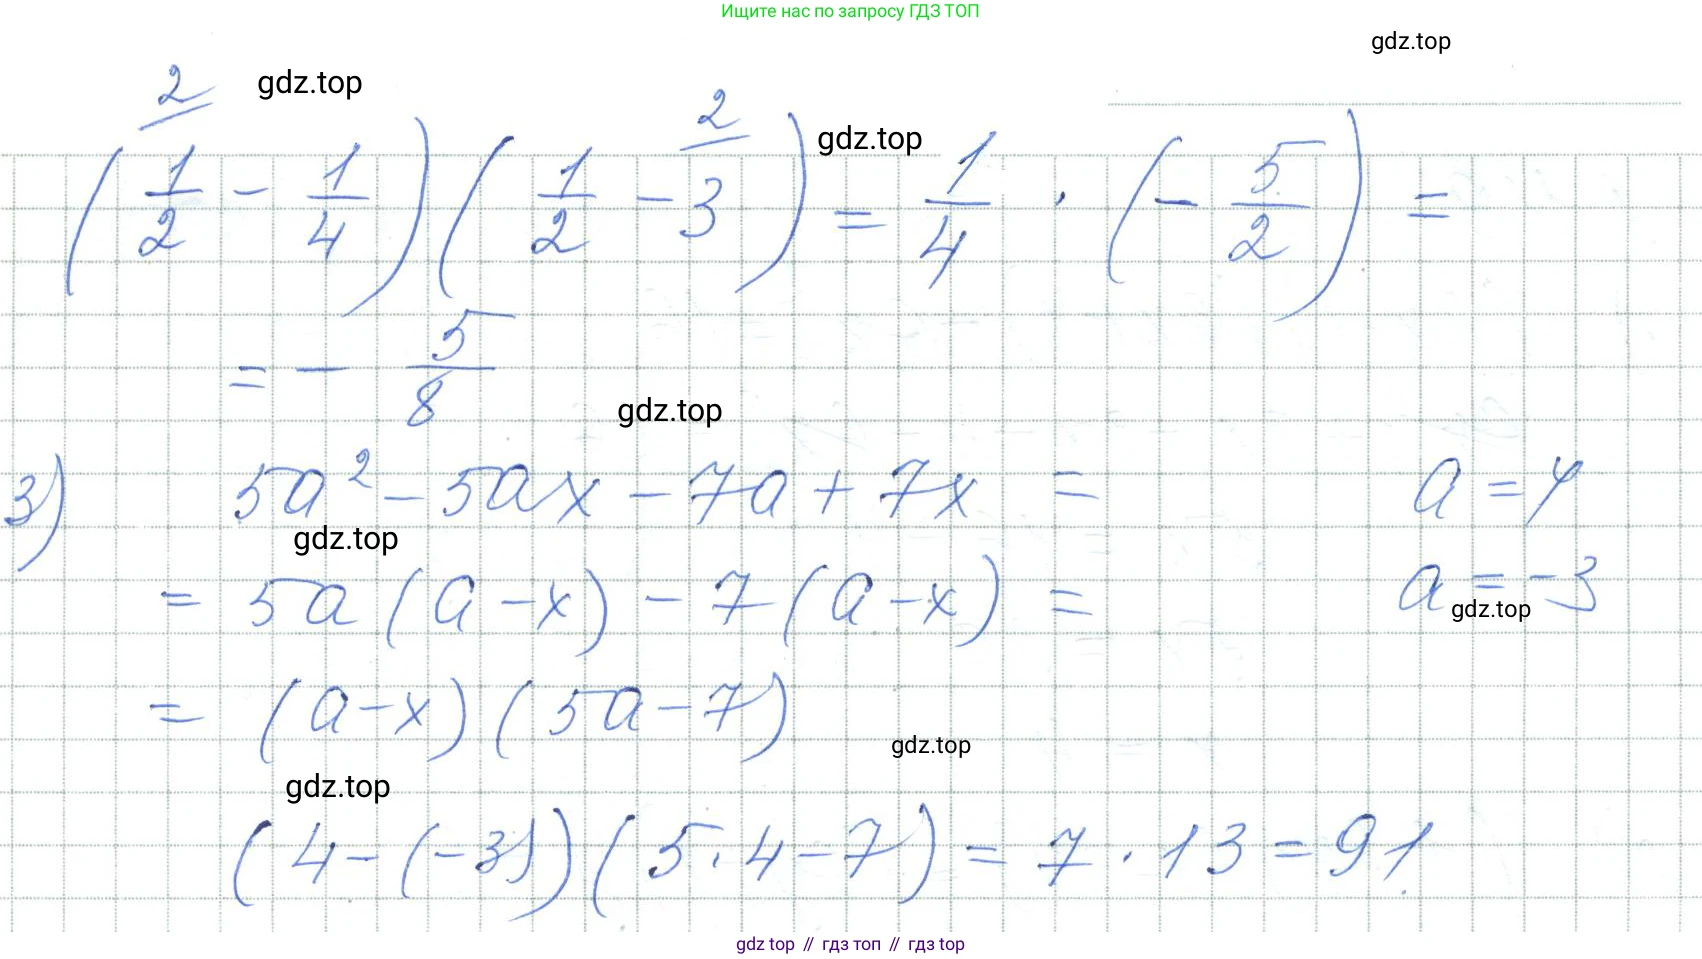 Ищите нас по запросу ГДЗ ТОП
gdz.top
gdz.top
2 2
gdz.top
(1/2 - 1/4)(1/2 - 3) = 1/4 · (- 5/2) =
= - 5/8
gdz.top
3) 5a² - 5ax - 7a + 7x = a = 4
gdz.top
= 5a(a - x) - 7(a - x) = a = -3
gdz.top
= (a - x)(5a - 7)
gdz.top
gdz.top
(4 - (-3))(5 · 4 - 7) = 7 · 13 = 91.
gdz top // гдз топ // гдз top